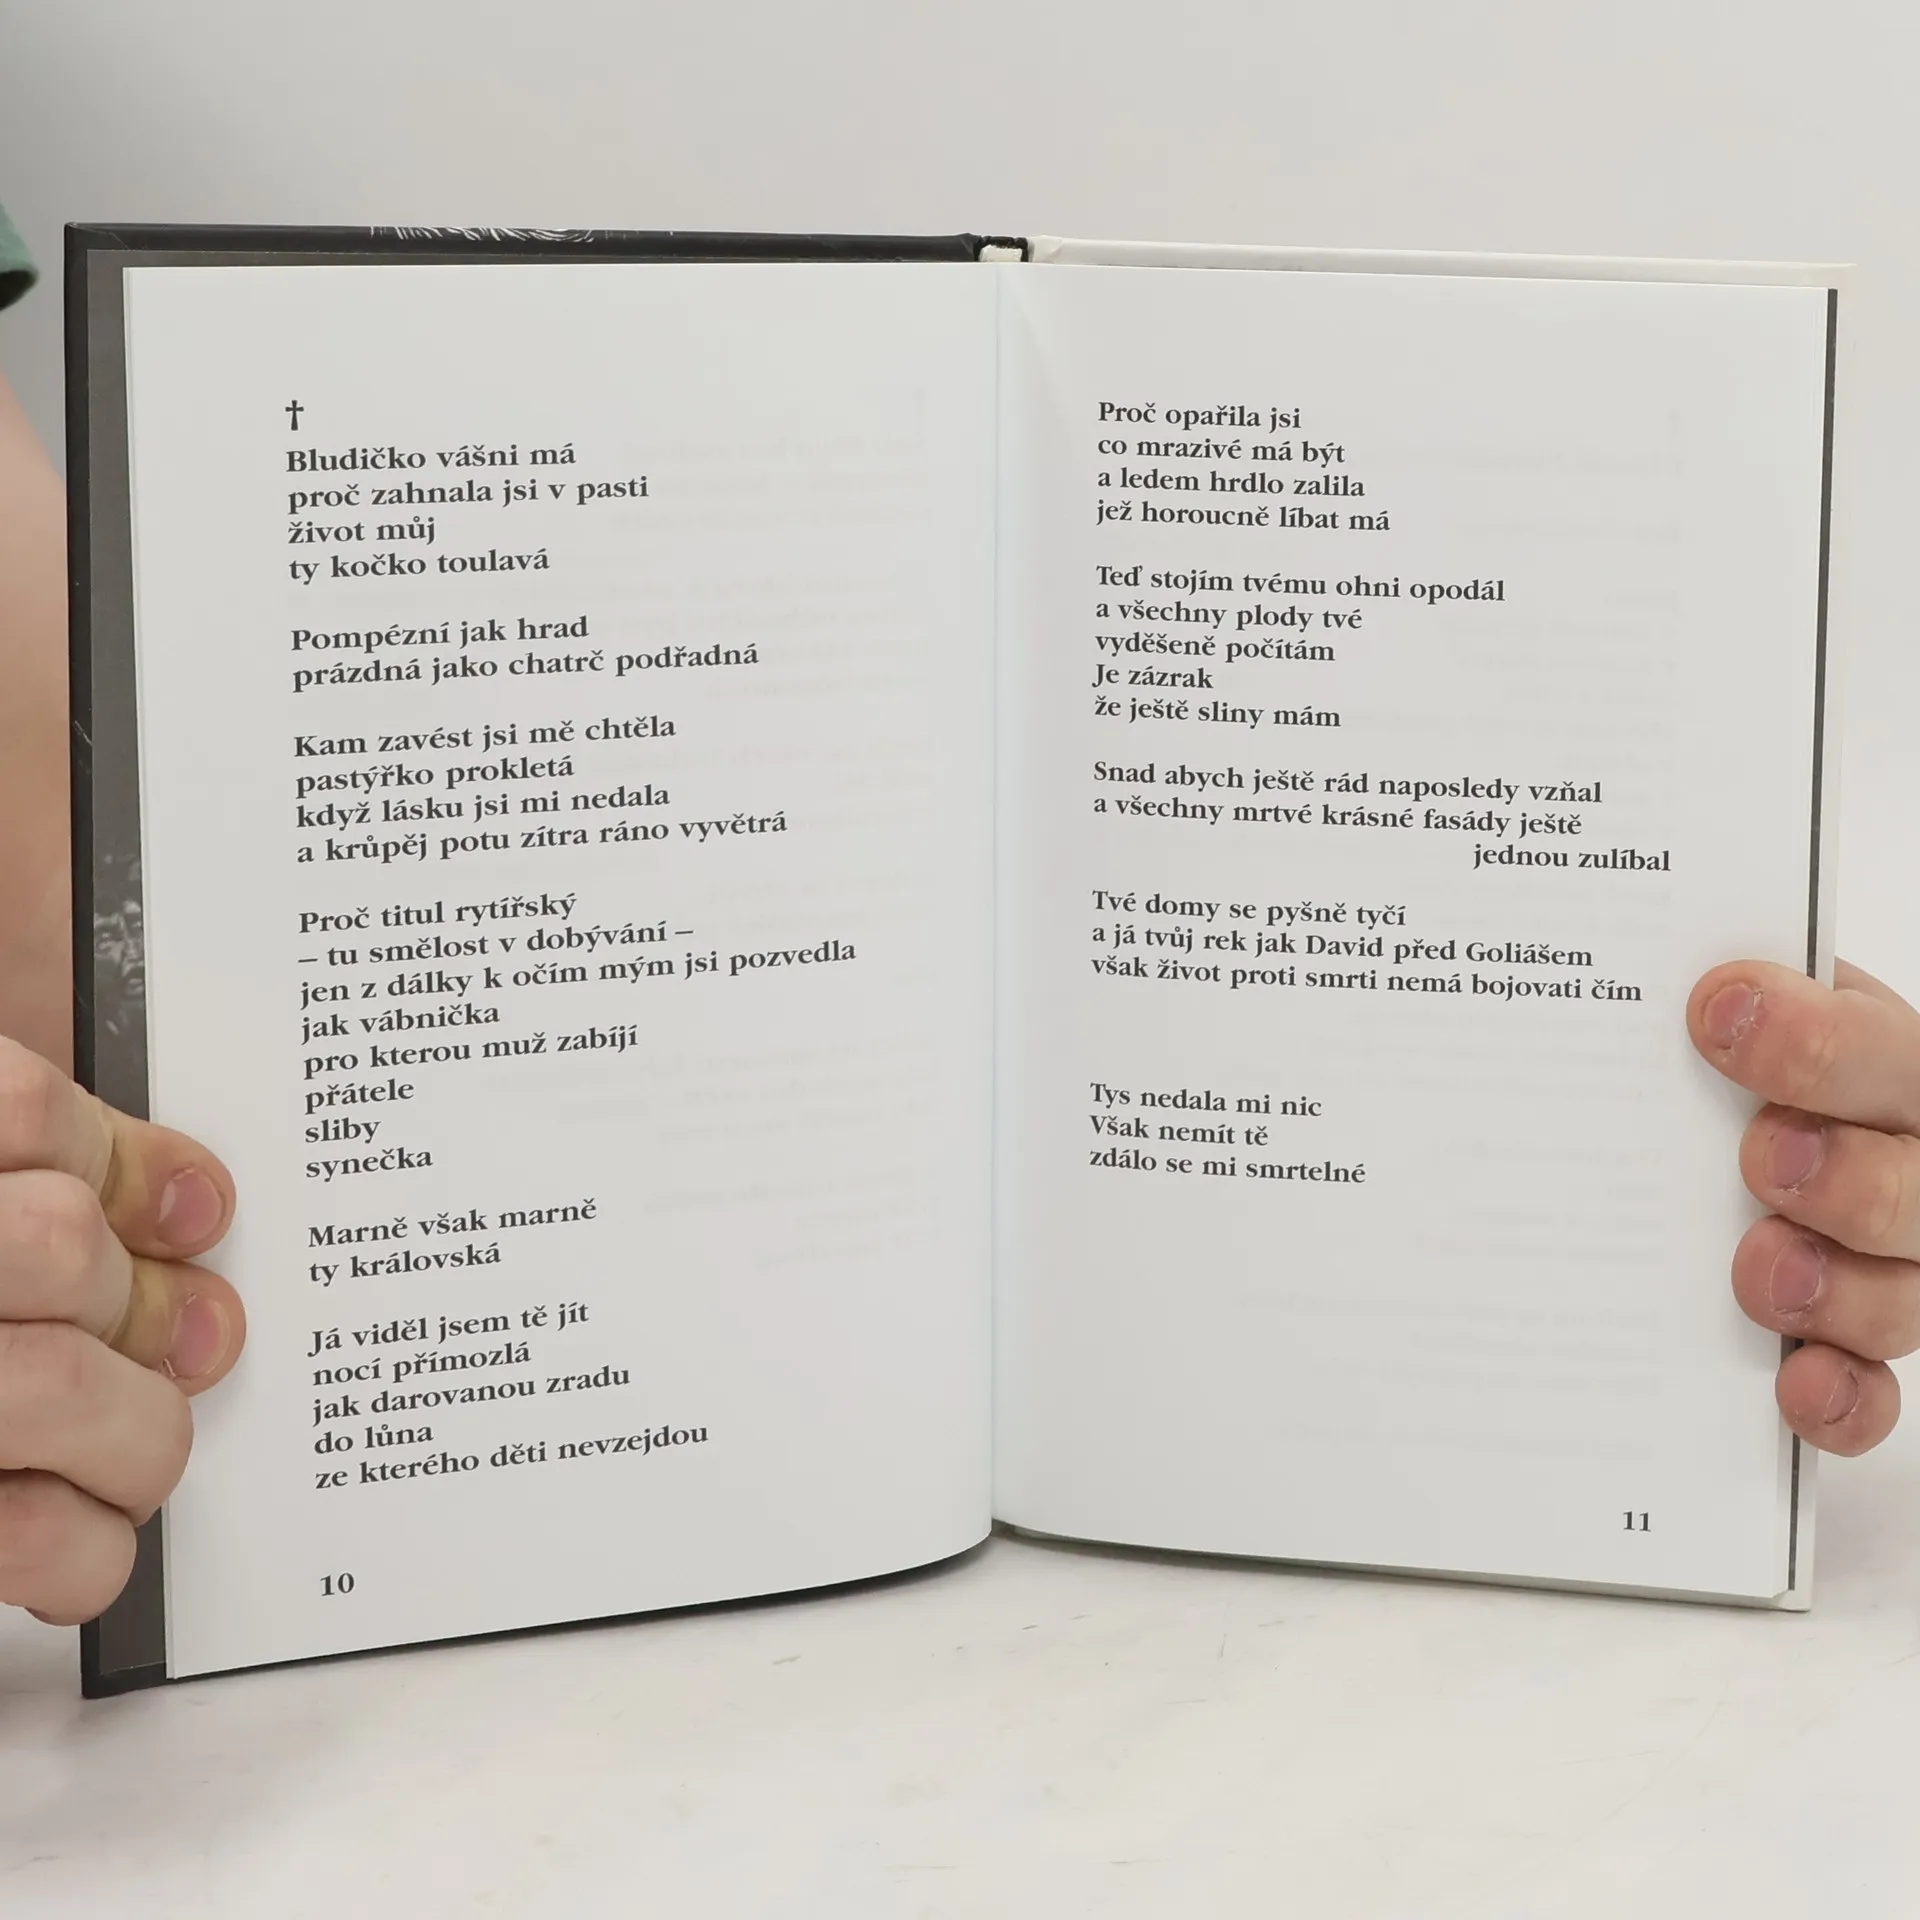 †
Bludičko vášni má
proč zahnala jsi v pasti
život můj
ty kočko toulavá
Pompézní jak hrad
prázdná jako chatrč podřadná
Kam zavést jsi mě chtěla
pastýřko prokletá
když lásku jsi mi nedala
a krůpěj potu zítra ráno vyvětrá
Proč titul rytířský
– tu smělost v dobývání –
jen z dálky k očím mým jsi pozvedla
jak vábnička
pro kterou muž zabíjí
přátele
sliby
synečka
Marně však marně
ty královská
Já viděl jsem tě jít
nocí přímozlá
jak darovanou zradu
do lůna
ze kterého děti nevzejdou
10
Proč opařila jsi
co mrazivé má být
a ledem hrdlo zalila
jež horoucně líbat má
Teď stojím tvému ohni opodál
a všechny plody tvé
vyděšeně počítám
Je zázrak
že ještě sliny mám
Snad abych ještě rád naposledy vzňal
a všechny mrtvé krásné fasády ještě
jednou zulíbal
Tvé domy se pyšně tyčí
a já tvůj rek jak David před Goliášem
však život proti smrti nemá bojovati čím
Tys nedala mi nic
Však nemít tě
zdálo se mi smrtelné
11